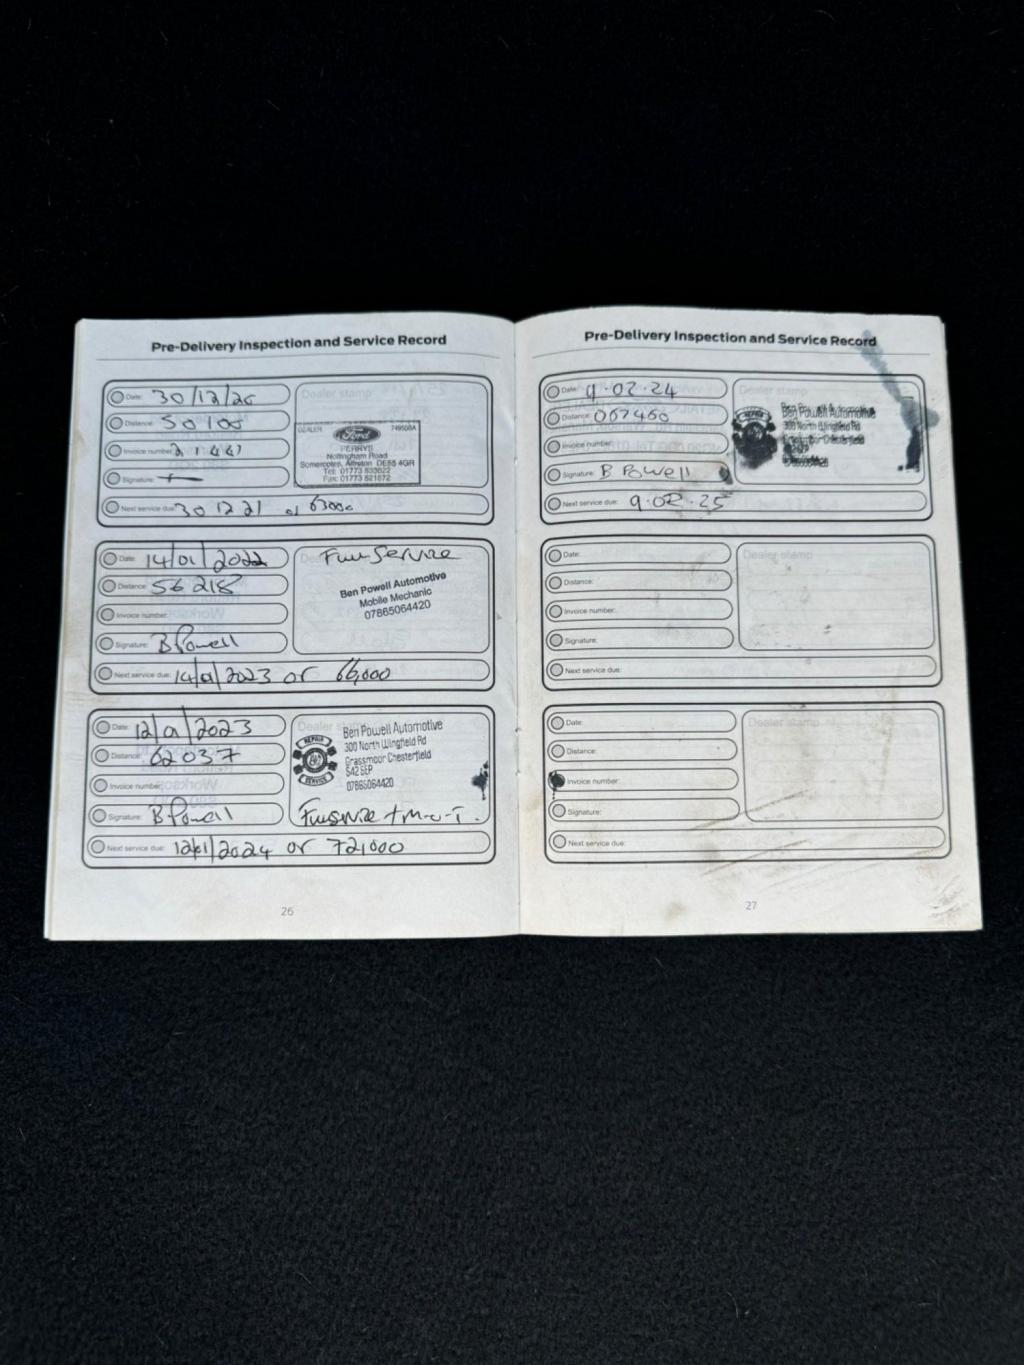 Pre-Delivery Inspection and Service Record
Date: 30/12/20
Distance: 50100
Invoice number:
Signature:
Dealer stamp
DEALER
Ford
PERRYS
Nottingham Road
Somercotes, Alfreton DE55 4GR
Tel: 01773
Fax: 01773 821872
Next service due: 30 12 21 or 63000
Date: 14/01/2022
Distance: 56218
Invoice number:
Signature: B Powell
Full Service
Ben Powell Automotive
Mobile Mechanic
07865064420
Next service due: 14/01/2023 or 66,000
Date: 12/01/2023
Distance: 62037
Invoice number:
Signature: B Powell
Dealer stamp
REPAIR
SERVICE
Ben Powell Automotive
300 North Wingfield Rd
Grassmoor Chesterfield
S42 5EP
07865064420
Full Service + M-O-T.
Next service due: 12/01/2024 or 72,000
26
Pre-Delivery Inspection and Service Record
Date: 9.02.24
Distance: 067460
Invoice number:
Signature: B Powell
Dealer stamp
REPAIR
Ben Powell Automotive
300 North Wingfield Rd
Grassmoor Chesterfield
07865064420
Next service due: 9.02.25
Date:
Distance:
Invoice number:
Signature:
Dealer stamp
Next service due:
Date:
Distance:
Invoice number:
Signature:
Dealer stamp
Next service due:
27